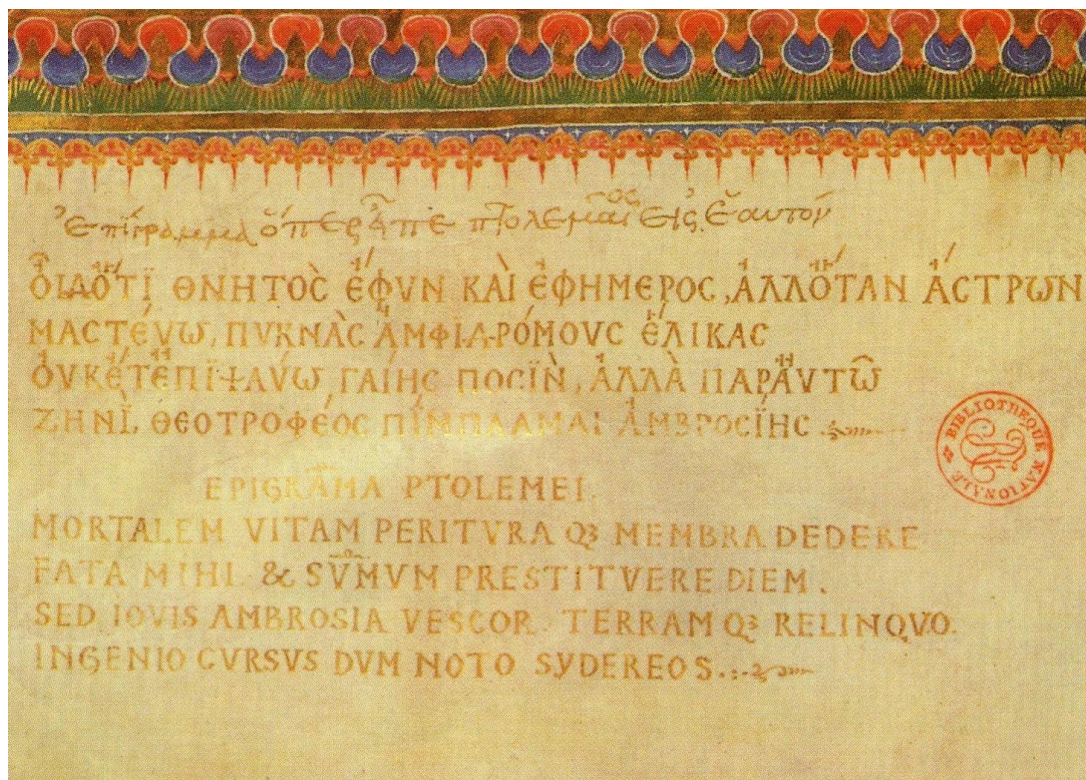 Ἐπίγραμμα ὅπερ εἶπε πτολεμαῖος εἰς ἑαυτόν
ΟἾΔ᾽ὍΤΪ ΘΝΗΤῸC ἜΦΥΝ ΚΑῚ ἘΦΉΜΕΡΟC, ἈΛΛ᾽ὍΤΑΝ ἌCΤΡΩΝ
ΜΑCΤΕΎΩ, ΠΥΚΝᾺC ἈΜΦΙΔΡΌΜΟΥC ἝΛΙΚΑC
ΟὐΚΈΤ᾽ἘΠΪΨΑΎΩ ΓΑΊΗC ΠΟCΪ̀Ν, ἈΛΛᾺ ΠΑΡ᾽ἈΥΤΩ͂
ΖΗΝῚ, ΘΕΟΤΡΟΦΈΟC ΠΊΜΠΛΑΜΑΙ ἈΜΒΡΟCΪ́ΗC
EPIGRAM̄A PTOLEMEI.
MORTALEM VITAM PERITVRA Qꝫ MEMBRA DEDERE
FATA MIHI & SVM̄VM PRESTITVERE DIEM.
SED IOVIS AMBROSIA VESCOR. TERRAM Qꝫ RELINQVO.
INGENIO CVRSVS DVM NOTO SYDEREOS.
BIBLIOTHEQUE NATIONALE